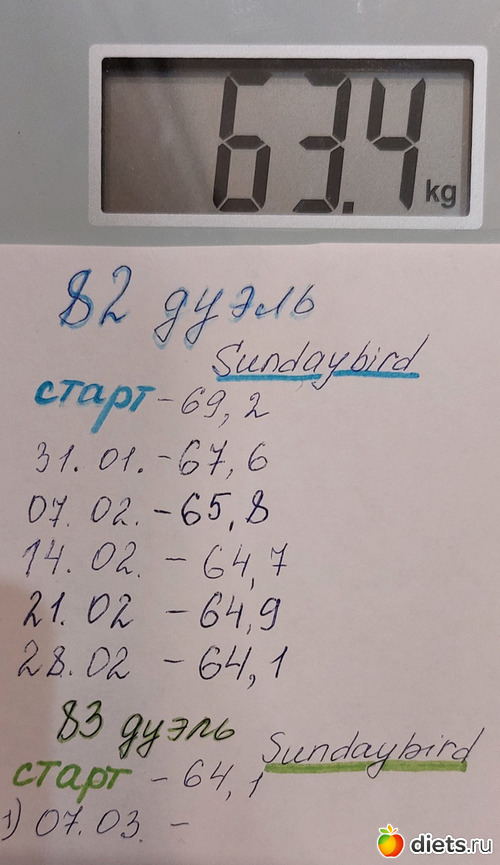 63.4 kg
82 дуэль
Sundaybird
старт - 69,2
31.01. - 67,6
07.02. - 65,8
14.02. - 64,7
21.02 - 64,9
28.02 - 64,1
83 дуэль
Sundaybird
старт - 64,1
1) 07.03. -
diets.ru